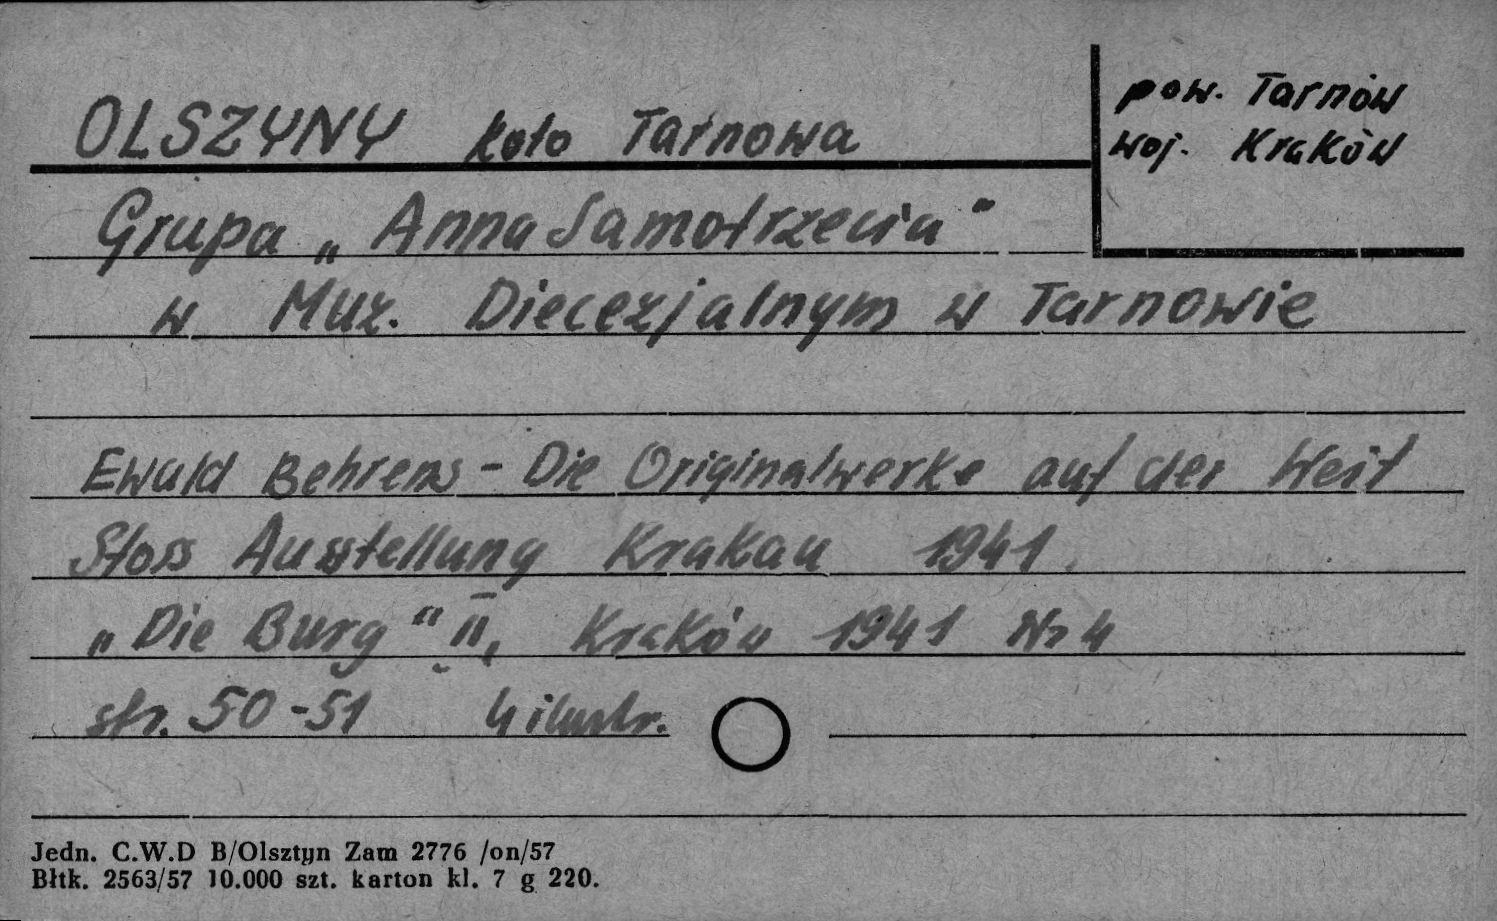 OLSZYNY koło Tarnowa
pow. Tarnów
woj. Kraków
Grupa „Anna Samotrzecia"
w Muz. Diecezjalnym w Tarnowie
Ewald Behrens - Die Originalwerke auf der Weit
Stoss Ausstellung Krakau 1941.
„Die Burg" II, Kraków 1941 Nr 4
str. 50-51 4 ilustr.
Jedn. C.W.D B/Olsztyn Zam 2776 /on/57
Błtk. 2563/57 10.000 szt. karton kl. 7 g 220.